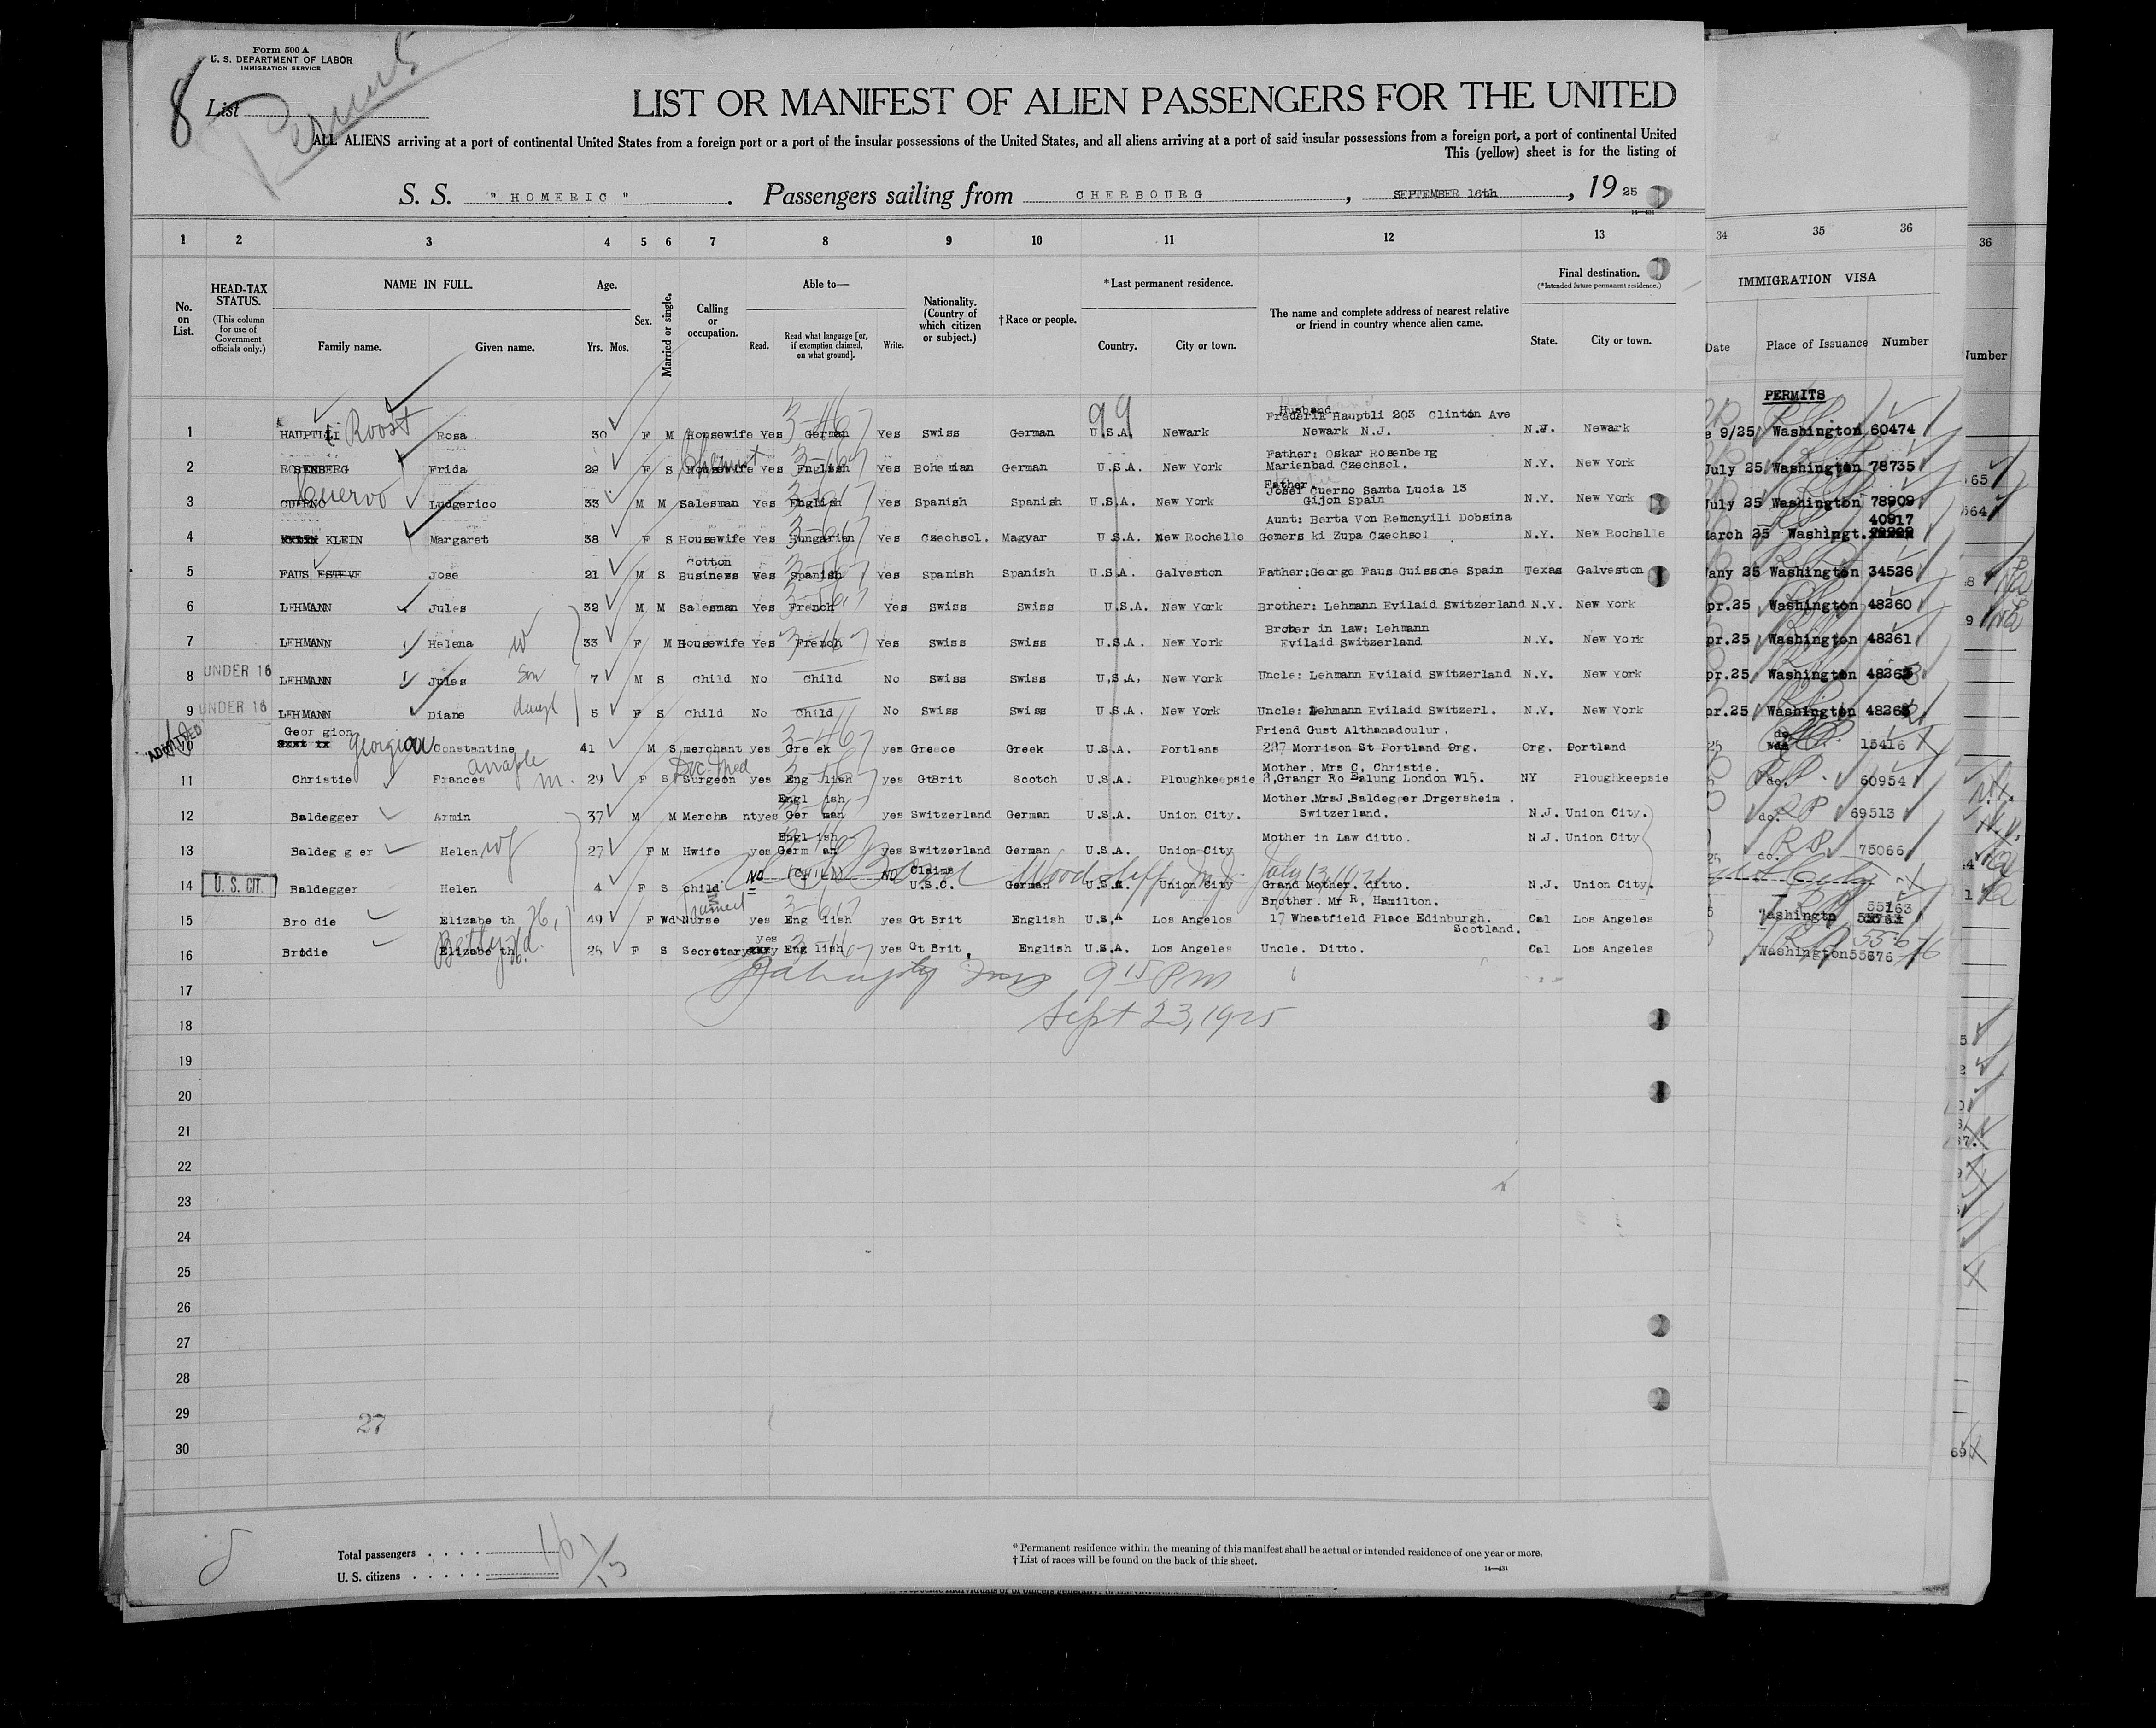 Form 500 A
U. S. DEPARTMENT OF LABOR
IMMIGRATION SERVICE
8 List
Permits
LIST OR MANIFEST OF ALIEN PASSENGERS FOR THE UNITED
ALL ALIENS arriving at a port of continental United States from a foreign port or a port of the insular possessions of the United States, and all aliens arriving at a port of said insular possessions from a foreign port, a port of continental United
This (yellow) sheet is for the listing of
S. S. " HOMERIC " . Passengers sailing from CHERBOURG , SEPTEMBER 16th , 19 25
14—431
1 2 3 4 5 6 7 8 9 10 11 12 13 34 35 36 36
No. on List.
HEAD-TAX STATUS.
(This column for use of Government officials only.)
NAME IN FULL.
Family name. Given name.
Age.
Yrs. Mos.
Sex.
Married or single.
Calling or occupation.
Able to—
Read. Read what language [or, if exemption claimed, on what ground]. Write.
Nationality. (Country of which citizen or subject.)
† Race or people.
* Last permanent residence.
Country. City or town.
The name and complete address of nearest relative or friend in country whence alien came.
Final destination.
(*Intended future permanent residence.)
State. City or town.
IMMIGRATION VISA
Date Place of Issuance Number
Number
PERMITS
99
Husband
1 HAUPTLI Roost Rosa 30 F M Housewife Yes German Yes Swiss German U.S.A. Newark Frederik Hauptli 203 Clinton Ave N.J. Newark 9/25 Washington 60474
Newark N.J.
Father: Oskar Rosenberg
2 ROSENBERG Frida 29 F S Housewife Yes English Yes Bohemian German U.S.A. New York Marienbad Czechsol. N.Y. New York July 25 Washington 78735
Father.
3 CUERNO Cuervo Ludgerico 33 M M Salesman Yes English Yes Spanish Spanish U.S.A. New York Josef Cuerno Santa Lucia 13 N.Y. New York July 25 Washington 78909
Gijon Spain
Aunt: Berta Von Remcnyili Dobsina
40917
4 KLEIN Margaret 38 F S Housewife Yes Hungarian Yes Czechsol. Magyar U.S.A. New Rochelle Gemers ki Zupa Czechsol N.Y. New Rochelle March 25 Washingt.
Cotton
5 FAUS ESTEVE Jose 21 M S Business Yes Spanish Yes Spanish Spanish U.S.A. Galveston Father:George Faus Guissone Spain Texas Galveston any 25 Washington 34526
6 LEHMANN Jules 32 M M Salesman Yes French Yes Swiss Swiss U.S.A. New York Brother: Lehmann Evilaid Switzerland N.Y. New York pr.25 Washington 48260
Brober in law: Lehmann
7 LEHMANN Helena W 33 F M Housewife Yes French Yes Swiss Swiss U.S.A. New York Evilaid Switzerland N.Y. New York pr.25 Washington 48261
8 UNDER 16 LEHMANN Jules Son 7 M S Child No Child No Swiss Swiss U.S.A. New York Uncle: Lehmann Evilaid Switzerland N.Y. New York pr.25 Washington 48263
9 UNDER 16 LEHMANN Diane daugt 5 F S Child No Child No Swiss Swiss U.S.A. New York Uncle: Lehmann Evilaid Switzerl. N.Y. New York pr.25 Washington 48262
ADMITTED
Geor gion
Friend Gust Althanadoulur.
10 Georgiou Constantine 41 M S merchant yes Gre ek yes Greece Greek U.S.A. Portlans 227 Morrison St Portland Org. Org. Portland 25 do 15416
Doc. Med
Mother. Mrs C, Christie.
11 Christie Frances anable M. 29 F S Surgeon yes Eng lish yes GtBrit Scotch U.S.A. Ploughkeepsie 8,Grangr Ro Ealung London W15. NY Ploughkeepsie do. 60954
Engl ish
Mother.MrsJ.Baldegger.Drgersheim .
12 Baldegger Armin 37 M M Mercha ntyes Ger man yes Switzerland German U.S.A. Union City. Switzerland. N.J. Union City. do. 69513
Engl ish
13 Baldeg g er Helen wf 27 F M Hwife yes Germ an yes Switzerland German U.S.A. Union City Mother in Law ditto. N.J. Union City 25 do. 75066
Born Woodcliff N.J. July 13, 1921
Claims
14 U. S. CIT. Baldegger Helen 4 F S child NO (CHILD) NO U.S.C. German U.S.A. Union City Grand Mother. ditto. N.J. Union City.
Brother. Mr R, Hamilton.
55163
15 Bro die Elizabe th H. 49 F Wd Nurse yes Eng lish yes Gt Brit English U.S.A Los Angelos 17 Wheatfield Place Edinburgh. Cal Los Angeles Washingtn
Scotland.
yes
16 Brodie Elizabe th Betty 25 F S Secretary Eng lish yes Gt Brit, English U.S.A. Los Angeles Uncle. Ditto. Cal Los Angeles Washington55676
17
9 15 PM
18
Sept 23, 1925
19
20
21
22
23
24
25
26
27
28
29
27
30
Total passengers . . . . 16
U. S. citizens . . . . .
* Permanent residence within the meaning of this manifest shall be actual or intended residence of one year or more.
† List of races will be found on the back of this sheet.
14—431